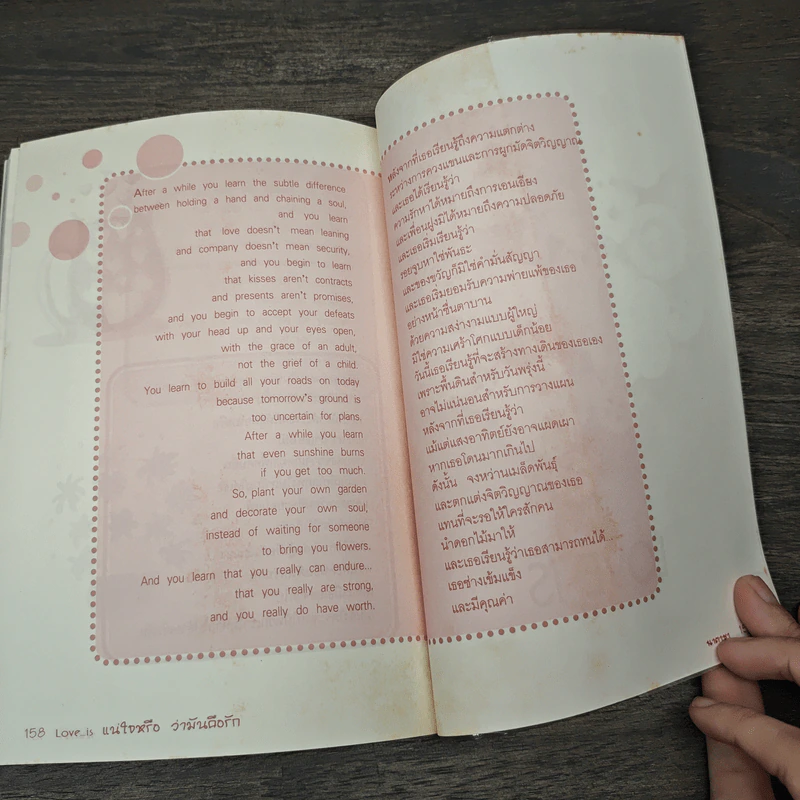 After a while you learn the subtle difference
between holding a hand and chaining a soul,
and you learn
that love doesn't mean leaning
and company doesn't mean security,
and you begin to learn
that kisses aren't contracts
and presents aren't promises,
and you begin to accept your defeats
with your head up and your eyes open,
with the grace of an adult,
not the grief of a child.
You learn to build all your roads on today
because tomorrow's ground is
too uncertain for plans.
After a while you learn
that even sunshine burns
if you get too much.
So, plant your own garden
and decorate your own soul,
instead of waiting for someone
to bring you flowers.
And you learn that you really can endure...
that you really are strong,
and you really do have worth.
158 Love..is แน่ใจหรือ ว่ามันคือรัก
หลังจากที่เธอเรียนรู้ถึงความแตกต่าง
ระหว่างการควงแขนและการผูกมัดจิตวิญญาณ
และเธอได้เรียนรู้ว่า
ความรักหาได้หมายถึงการเอนเอียง
และเพื่อนฝูงมิได้หมายถึงความปลอดภัย
และเธอเริ่มเรียนรู้ว่า
รอยจูบหาใช่พันธะ
และของขวัญก็มิใช่คำมั่นสัญญา
และเธอเริ่มยอมรับความพ่ายแพ้ของเธอ
อย่างหน้าชื่นตาบาน
ด้วยความสง่างามแบบผู้ใหญ่
มิใช่ความเศร้าโศกแบบเด็กน้อย
วันนี้เธอเรียนรู้ที่จะสร้างทางเดินของเธอเอง
เพราะพื้นดินสำหรับวันพรุ่งนี้
อาจไม่แน่นอนสำหรับการวางแผน
หลังจากที่เธอเรียนรู้ว่า
แม้แต่แสงอาทิตย์ยังอาจแผดเผา
หากเธอโดนมากเกินไป
ดังนั้น จงหว่านเมล็ดพันธุ์
และตกแต่งจิตวิญญาณของเธอ
แทนที่จะรอให้ใครสักคน
นำดอกไม้มาให้
และเธอเรียนรู้ว่าเธอสามารถทนได้...
เธอช่างเข้มแข็ง
และมีคุณค่า